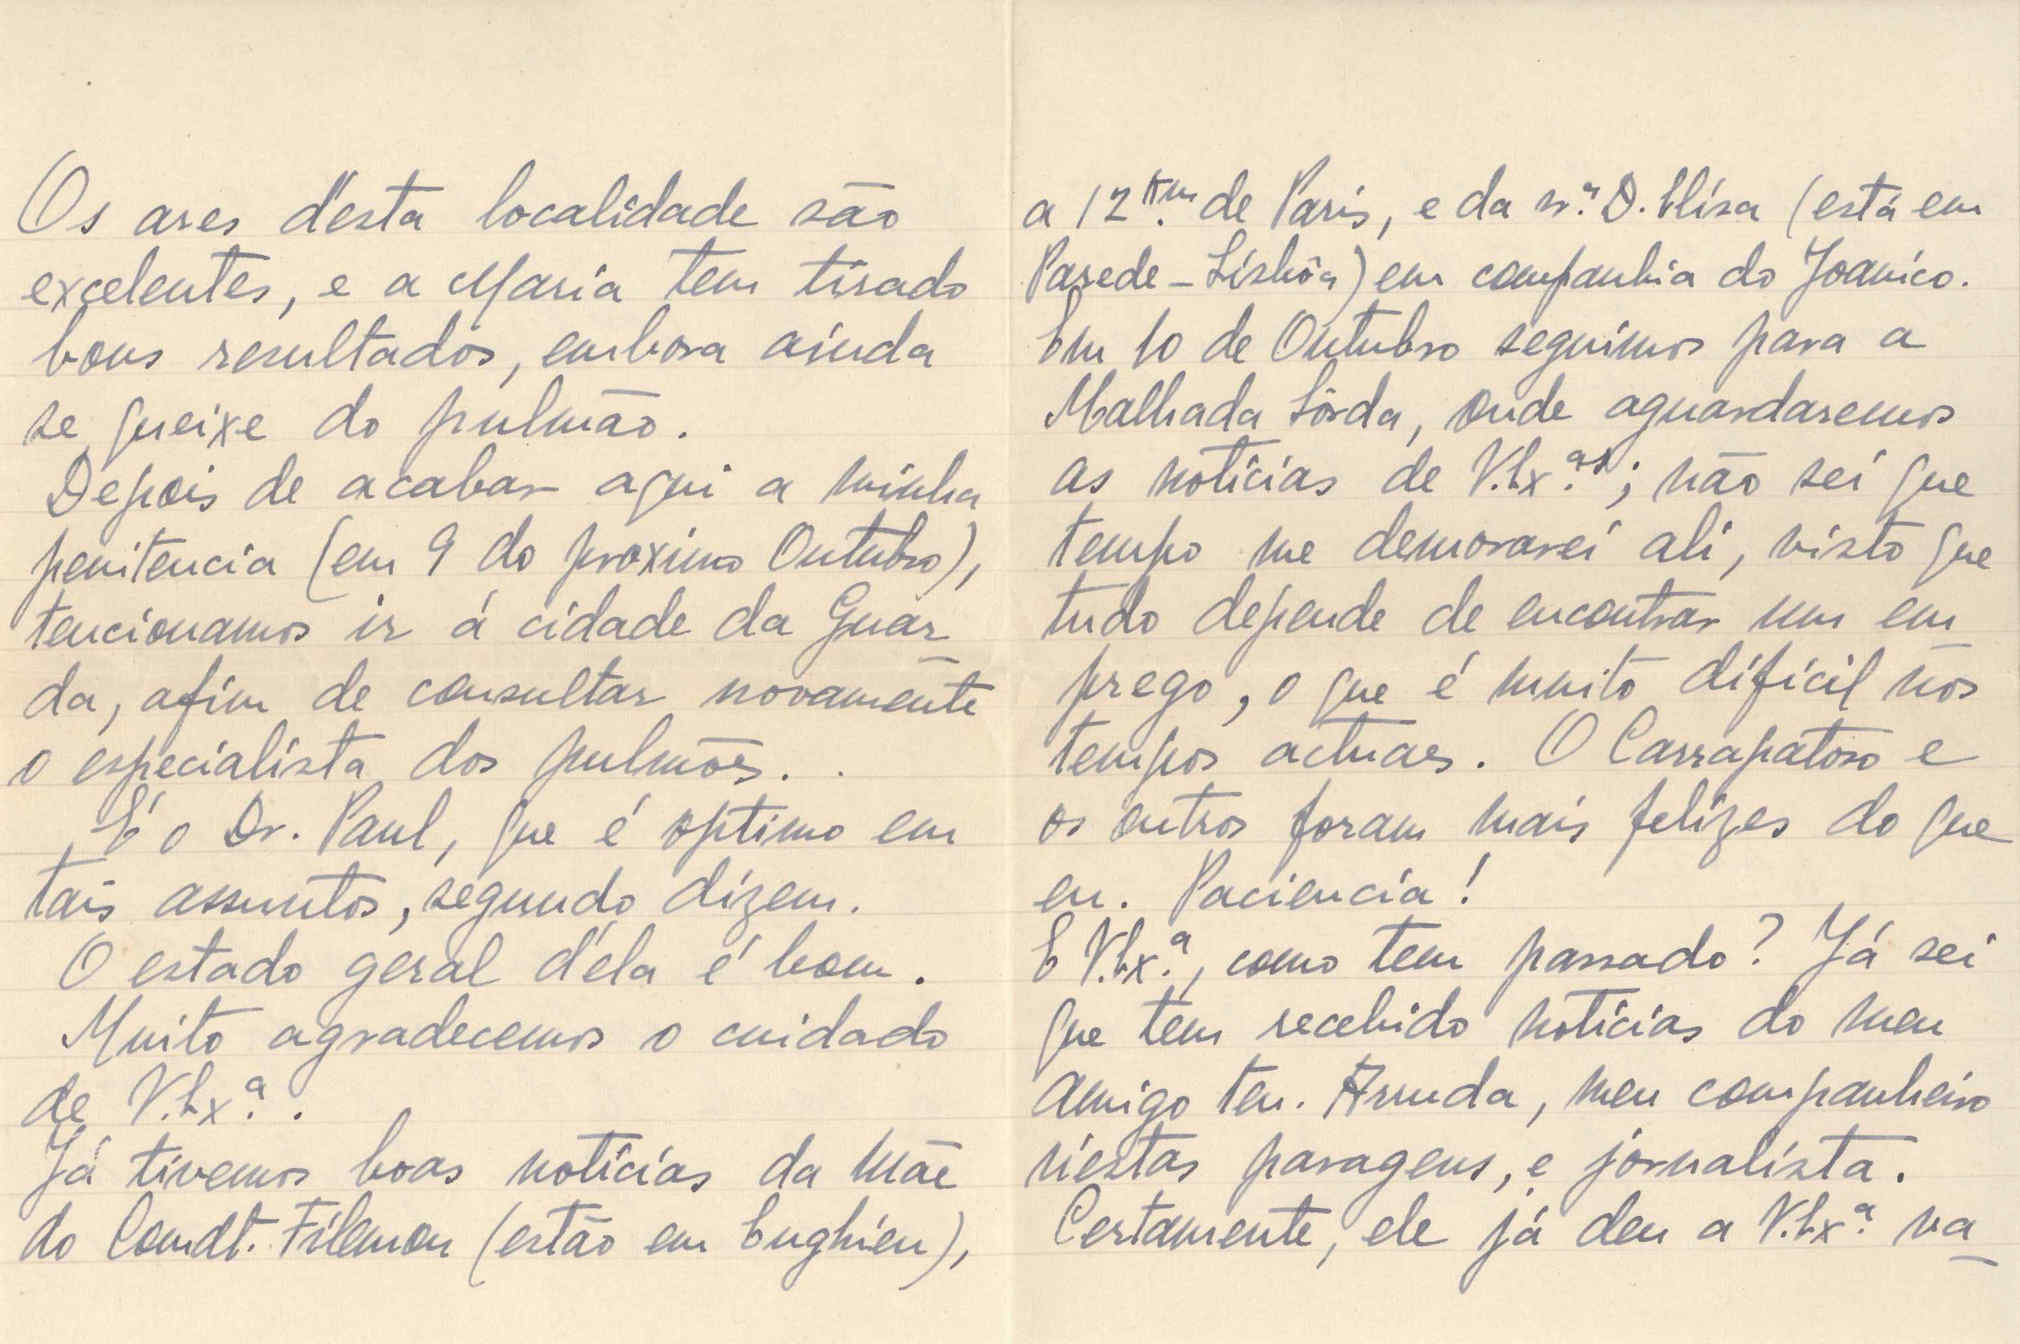 Os ares d'esta localidade são
excelentes, e a Maria tem tirado
bons resultados, embora ainda
se queixe do pulmão.
Depois de acabar aqui a minha
penitencia (em 9 do proximo Outubro),
tencionamos ir á cidade da Guar_
da, afim de consultar novamente
o especialista dos pulmões.
É o Dr. Paul, que é optimo em
tais assuntos, segundo dizem.
O estado geral d'ela é bom.
Muito agradecemos o cuidado
de V.Ex.ª.
Já tivemos boas notícias da mãe
do Comdt. Filemon (estão em Enghien),
a 12 km. de Paris, e da sr.ª D. Elisa (está em
Parede - Lisbôa) em companhia do Joanico.
Em 10 de Outubro seguimos para a
Malhada Sôrda, onde aguardaremos
as notícias de V.Ex.ªs; não sei que
tempo me demorarei ali, visto que
tudo depende de encontrar um em_
prego, o que é muito difícil nos
tempos actuaes. O Carrapatoso e
os outros foram mais felizes do que
eu. Paciencia!
E V.Ex.ª, como tem passado? Já sei
que tem recebido notícias do meu
amigo ten. Arruda, meu companheiro
n'estas paragens, e jornalista.
Certamente, ele já deu a V.Ex.ª va_